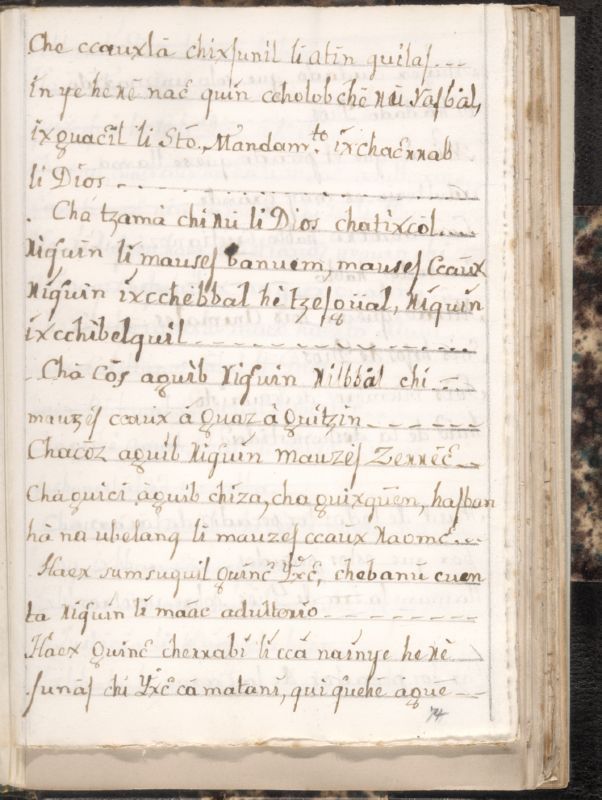 Che ccauxlâ chixsunil li atin quilas
in ye he nê nac quin ccholob chê nú yasbal,
ixguacîl li Sto. Mandam.to ixchacrrab
li Dios
Cha tzamà chi nú li Dios chatixcol
Niquin li mauses banuem, mauses ccaux
Niquin ixcchebbal hi tzesoüal, Niquin
ixcchibelquil
Cha Côs aguib Niquin Nilbbal chi
mauzés ccaux à Quaz à Quitzin
Chacôz aguib Niquin mauzes Zenrêc
Cha guici àguib chiza, cha guixquem, hasban
hà na ubelanq li mauzes ccaux Naomc
Haex sumsuquil quinc Yxc, chebanú cuen
ta Niquin li màac adultorio
Haex Quinc cherrabi li ccà nainye he nê
sunàs chi Yxc cà matani, qui quehe aguê
74